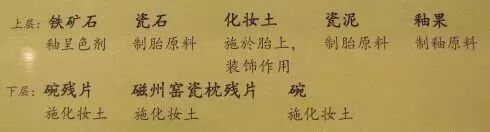 上层: 铁矿石 瓷石 化妆土 瓷泥 釉果
釉呈色剂 制胎原料 施於胎上, 制胎原料 制釉原料
装饰作用
下层: 碗残片 磁州窑瓷枕残片 碗
施化妆土 施化妆土 施化妆土